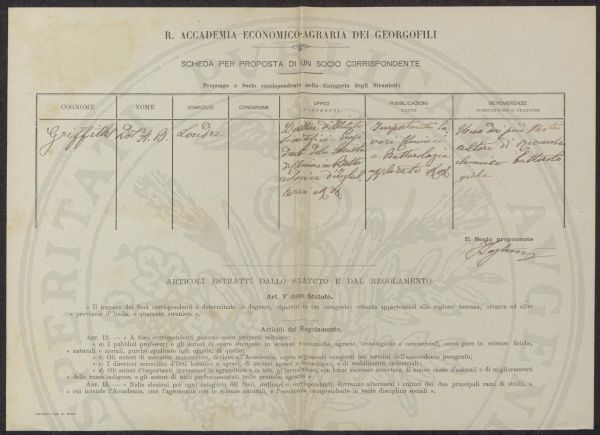 R. ACCADEMIA ECONOMICO-AGRARIA DEI GEORGOFILI
SCHEDA PER PROPOSTA DI UN SOCIO CORRISPONDENTE
Propongo a Socio corrispondente nella Categoria degli Stranieri:
COGNOME NOME DOMICILIO CONDIZIONE UFFICI SOSTENUTI PUBBLICAZIONI FATTE BENEMERENZE SCIENTIFICHE O PRATICHE
Griffith Dot. A. B. Londra
Importanti la
vori
e Batterologia
applicata
Uno dei più
chimico batterolo
Il Socio proponente
ARTICOLI ESTRATTI DALLO STATUTO E DAL REGOLAMENTO.
Art. V dello Statuto.
« Il numero dei Soci corrispondenti è determinato in dugento, ripartiti in tre categorie: ottanta appartenenti alle regione toscana, ottanta ad altre
« provincie d'Italia, e quaranta stranieri ».
Articoli del Regolamento.
ART. 12. — « A Soci corrispondenti possono esser proposti soltanto:
« a: i pubblici professori e gli autori di opere stampate in scienze economiche, agrarie, tecnologiche e commerciali, come pure in scienze fisiche,
« naturali e morali, purchè applicate agli oggetti di quelle;
« b: Gli autori di memorie manoscritte, inviate all'Accademia, sopra argomenti compresi nei termini dell'antecedente paragrafo;
« c: I direttori scientifici d'Orti botanici e agrari, di istituti agrari e tecnologici, e di stabilimenti industriali;
« d: Gli autori d'importanti invenzioni in agricoltura o in arti, gl'introduttori, con buon successo accertato, di nuove razze d'animali o di miglioramenti
« delle razze indigene, e gli autori di utili perfezionamenti nelle pratiche agrarie ».
ART. 15. — « Nelle elezioni per ogni categoria dei Soci, ordinari o corrispondenti, dovranno alternarsi i cultori dei due principali rami di studii, a
« cui intende l'Accademia, cioè l'agronomia con le scienze naturali, e l'economia comprendente le varie discipline sociali ».